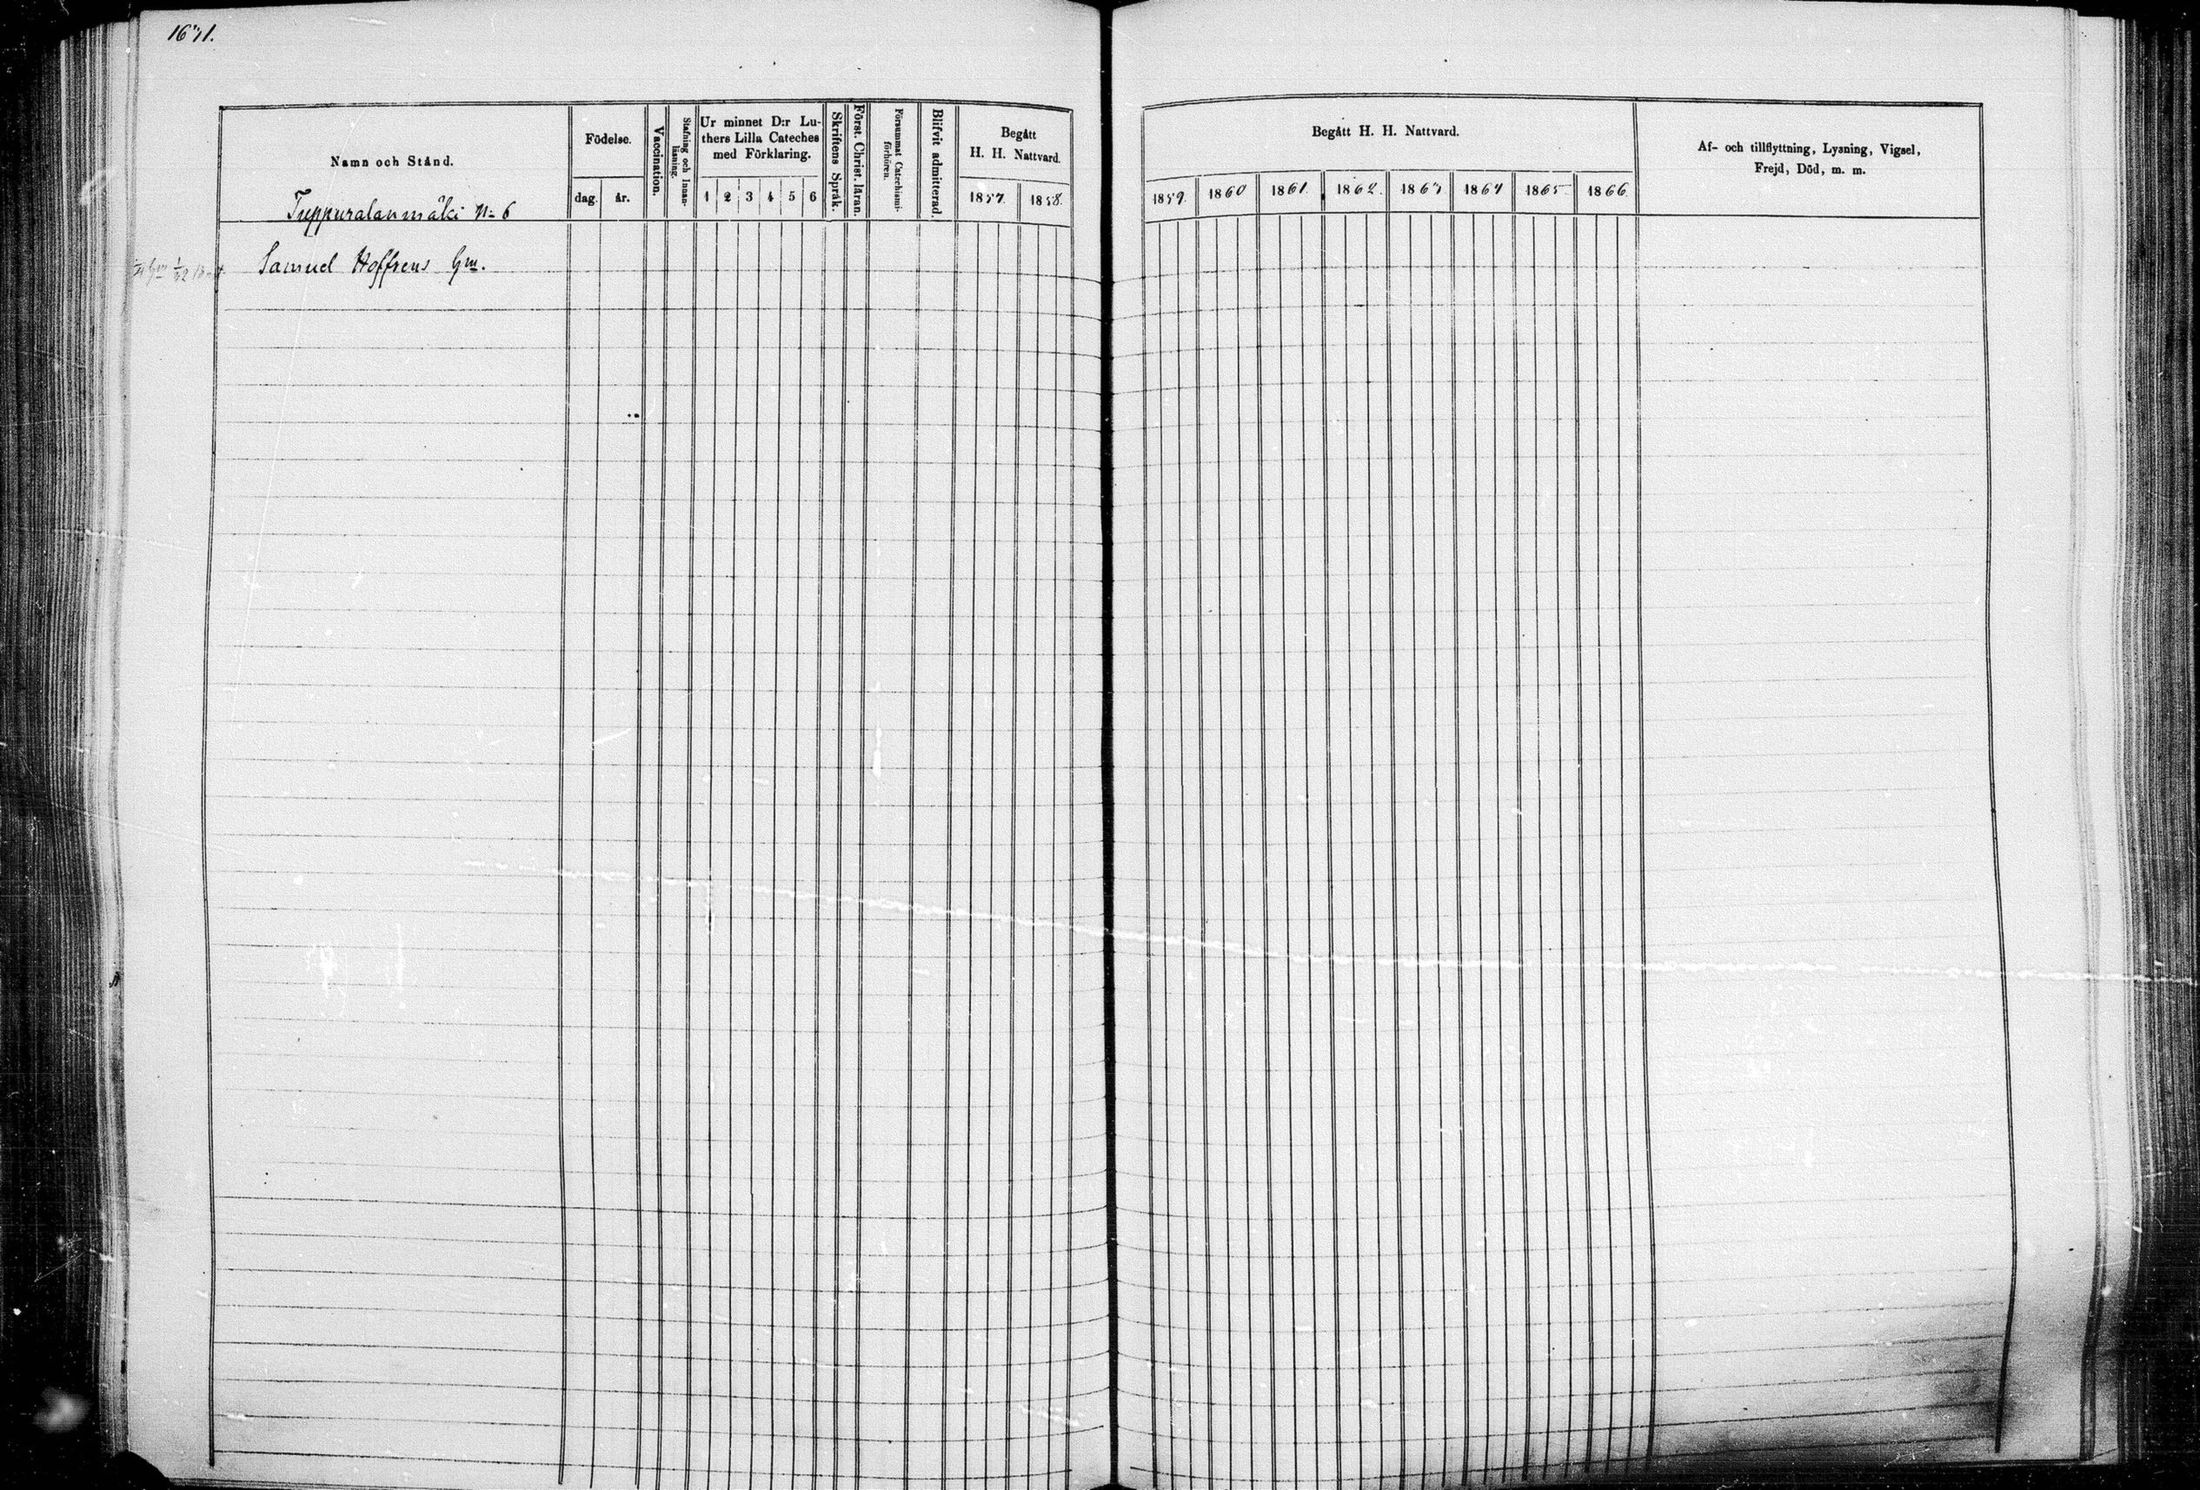 1671.
Namn och Stånd.
Tuppuralanmäki N= 6
Födelse.
dag. år.
Vaccination.
Stafning och Innanläsning.
Ur minnet D:r Lu-
thers Lilla Cateches
med Förklaring.
1 2 3 4 5 6
Skriftens Språk.
Först. Christ. läran.
Försummat Catechismi-
förhören.
Blifvit admitterad.
Begått
H. H. Nattvard.
1857. 1858.
Samuel Hoffrens Gm.
Begått H. H. Nattvard.
1859. 1860 1861. 1862. 1863 1864 1865 1866
Af- och tillflyttning, Lysning, Vigsel,
Frejd, Död, m. m.